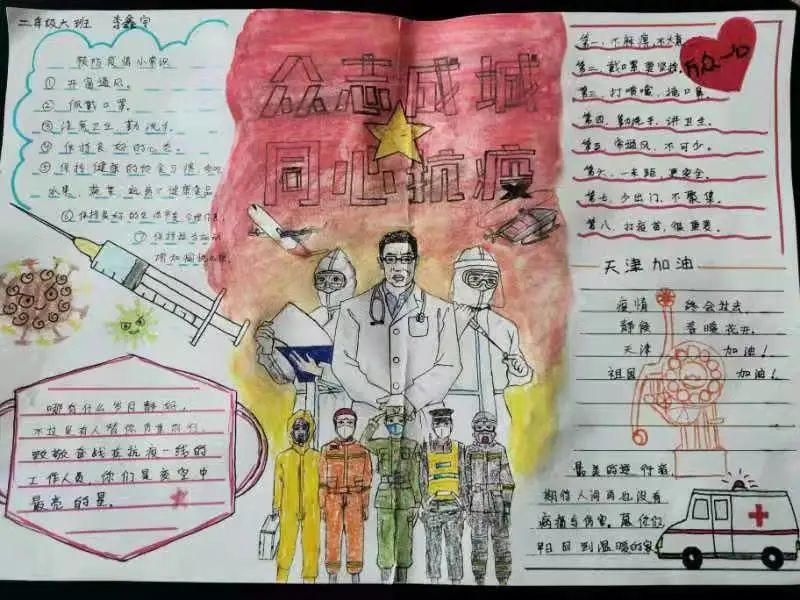 二年级六班 李鑫宇
预防疫情小常识
① 开窗通风。
② 佩戴口罩。
③ 注意卫生勤洗手。
④ 保持良好的心态。
⑤ 保持健康的饮食习惯,
水果、蔬菜、
⑥ 保持良好的
⑦ 保持
众志成城
同心抗疫
第一、不
第二、戴口罩要坚持。
第三、打喷嚏,捂口鼻。
第四、勤洗手,讲卫生。
第五、常通风,不可少。
第六、一米距,更安全。
第七、少出门、不聚集。
第八、打疫苗,很重要。
万众一心
天津加油
疫情 终会过去,
静候 春暖花开。
天津 加油!
祖国 加油!
哪有什么岁月静好,
不过是有人替你负重前行
致敬奋战在抗疫一线的
工作人员,你们是夜空中
最亮的星。
最美的逆行者
期待人间再也没有
病痛与伤害。愿你们
早日回到温暖的家